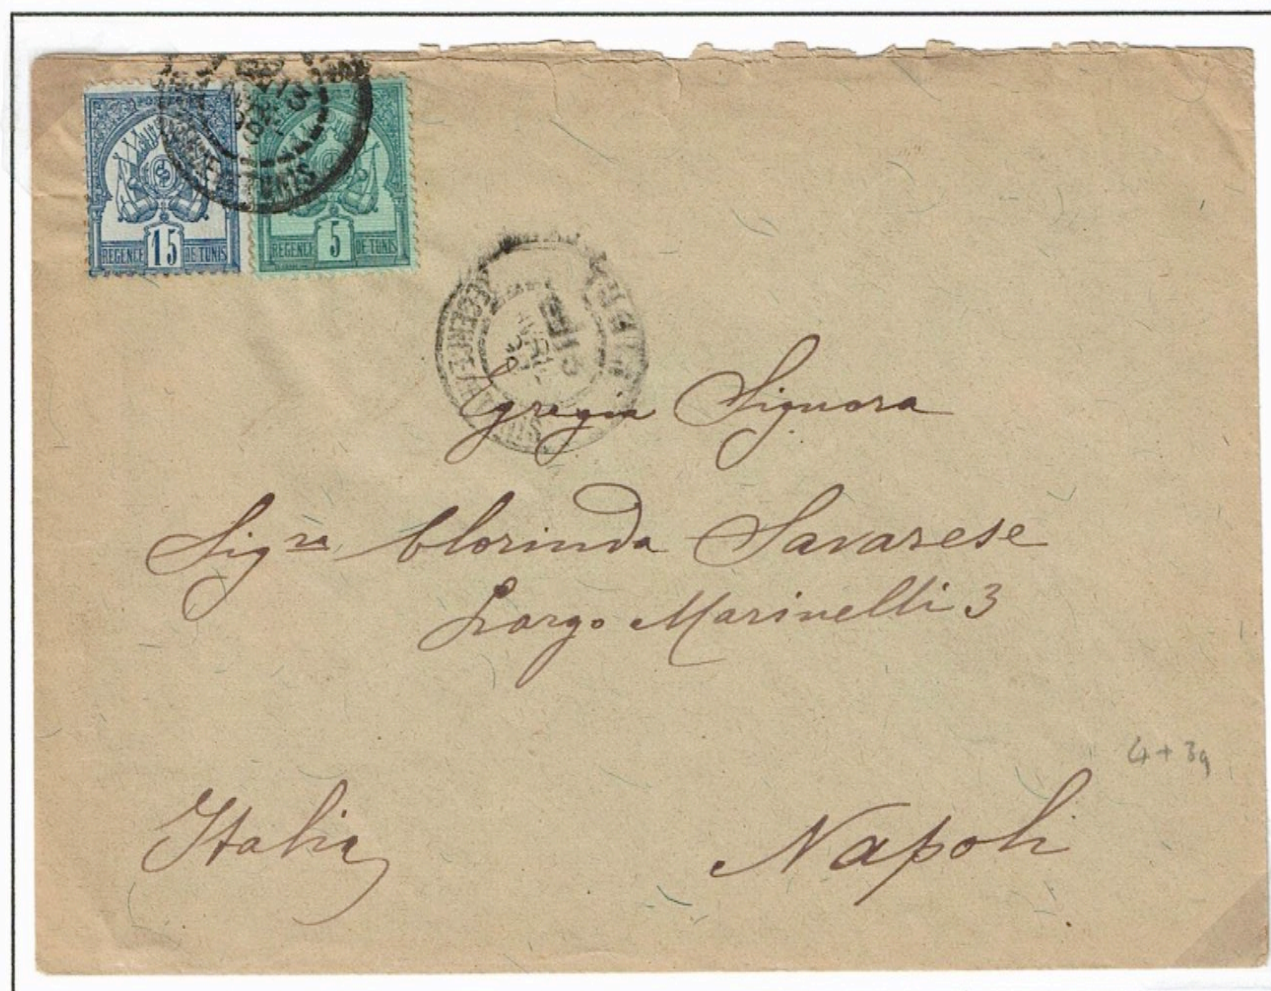 POSTES
15
REGENCE DE TUNIS
5
REGENCE DE TUNIS
TUNIS
Egregia Signora
Sigra Clorinda Savarese
Largo Marinelli 3
4+3g
Italia
Napoli